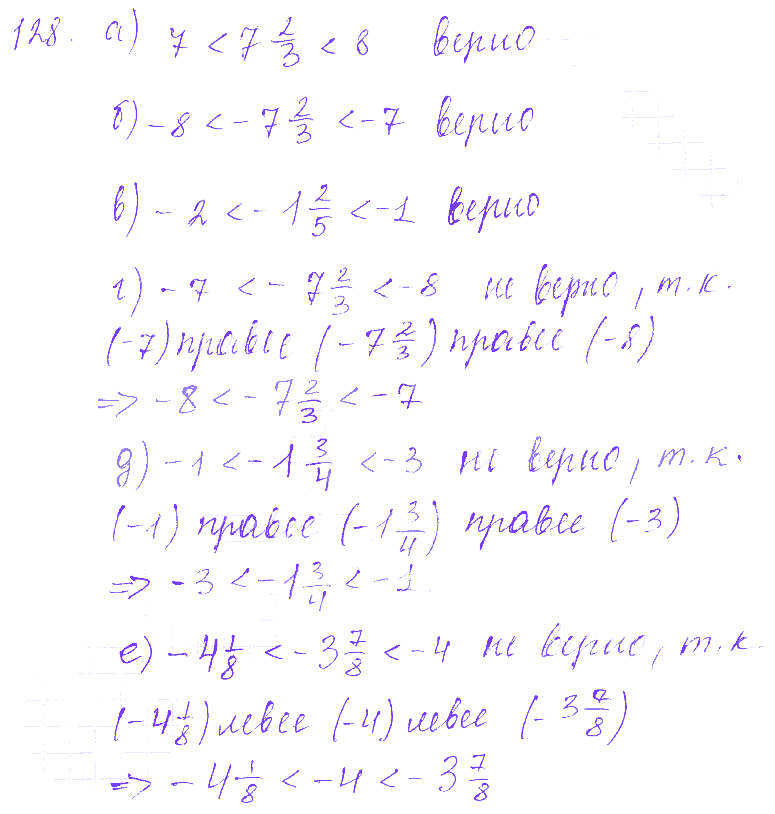 128. а) 7 < 7 2/3 < 8 верно
б) -8 < -7 2/3 < -7 верно
в) -2 < -1 2/5 < -1 верно
г) -7 < -7 2/3 < -8 не верно, т.к.
(-7) правее (-7 2/3) правее (-8)
=> -8 < -7 2/3 < -7
д) -1 < -1 3/4 < -3 не верно, т.к.
(-1) правее (-1 3/4) правее (-3)
=> -3 < -1 3/4 < -1
е) -4 1/8 < -3 7/8 < -4 не верно, т.к.
(-4 1/8) левее (-4) левее (-3 7/8)
=> -4 1/8 < -4 < -3 7/8